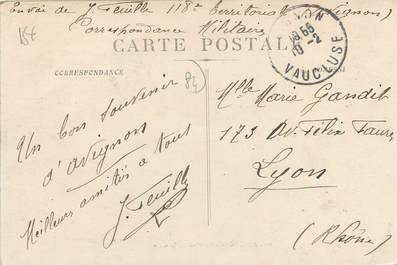 Envoi de J. Feuille 118e Territorial (Avignon)
Correspondance Militaire
CARTE POSTALE
VAUCLUSE
CORRESPONDANCE
84
Un bon souvenir
d'Avignon
Meilleurs amitiés à tous
J. Feuille
Mlle Marie Gandit
173 Av. Felix Faure
Lyon
(Rhône)